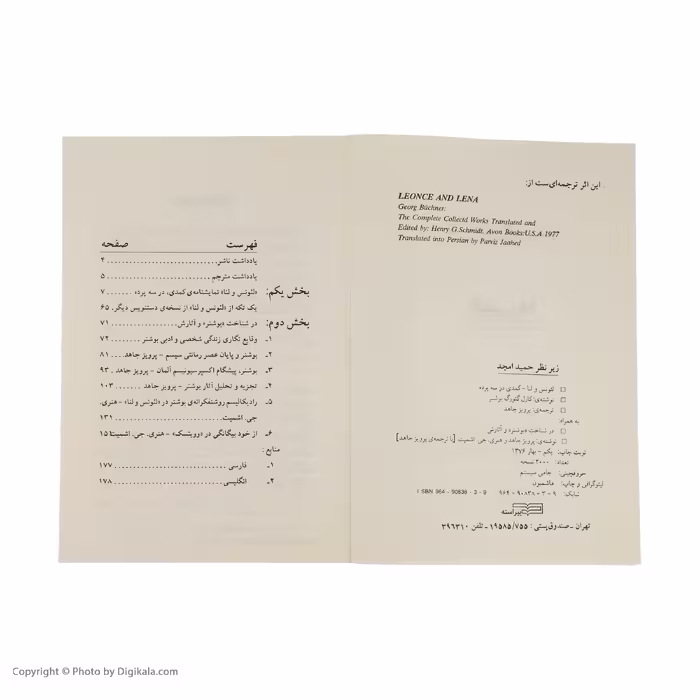 این اثر ترجمه‌ای‌ست از:
LEONCE AND LENA
Georg Büchner:
The Complete Collectd Works Translated and
Edited by: Henry G.Schmidt. Avon Books:U.S.A 1977
Translated into Persian by Parviz Jaahed
زیر نظر حمید امجد
□ لئونس و لنا - کمدی در سه پرده
□ نوشته‌ی: کارل گئورگ بوشنر
□ ترجمه‌ی: پرویز جاهد
به همراه:
□ در شناخت «بوشنر» و آثارش
□ نوشته‌ی: پرویز جاهد و هنری. جی. اشمیت. [با ترجمه‌ی پرویز جاهد]
نوبت چاپ: یکم - بهار ۱۳۷۶
تعداد: ۲۰۰۰ نسخه
حروفچینی: جامی سیستم
لیتوگرافی و چاپ: هاشمیون
شابک: ۹ - ۳ - ۹۰۸۳۸ - ۹۶۴ ISBN 964 - 90838 - 3 - 9
پیراسته
تهران - صندوق پستی: ۱۹۵۸۵/۷۵۵ - تلفن ۳۹۶۳۱۰
فهرست صفحه
یادداشت ناشر ۴
یادداشت مترجم ۵
بخش یکم: «لئونس و لنا» نمایشنامه‌ی کمدی، در سه پرده ۷
یک تکه از «لئونس و لنا» از نسخه‌ی دستنویس دیگر. ۶۵
بخش دوم: در شناخت «بوشنر» و آثارش ۷۱
۱- وقایع نگاری زندگی شخصی و ادبی بوشنر ۷۲
۲- بوشنر و پایان عصر رمانتی سیسم - پرویز جاهد ۸۱
۳- بوشنر، پیشگام اکسپرسیونیسم آلمان - پرویز جاهد ۹۳
۴- تجزیه و تحلیل آثار بوشنر - پرویز جاهد ۱۰۳
۵- رادیکالیسم روشنفکرانه‌ی بوشنر در «لئونس و لنا» - هنری.
جی. اشمیت ۱۳۱
۶- از خود بیگانگی در «وویتسک» - هنری. جی. اشمیت
منابع:
۱- فارسی ۱۷۷
۲- انگلیسی ۱۷۸
Copyright © Photo by Digikala.com